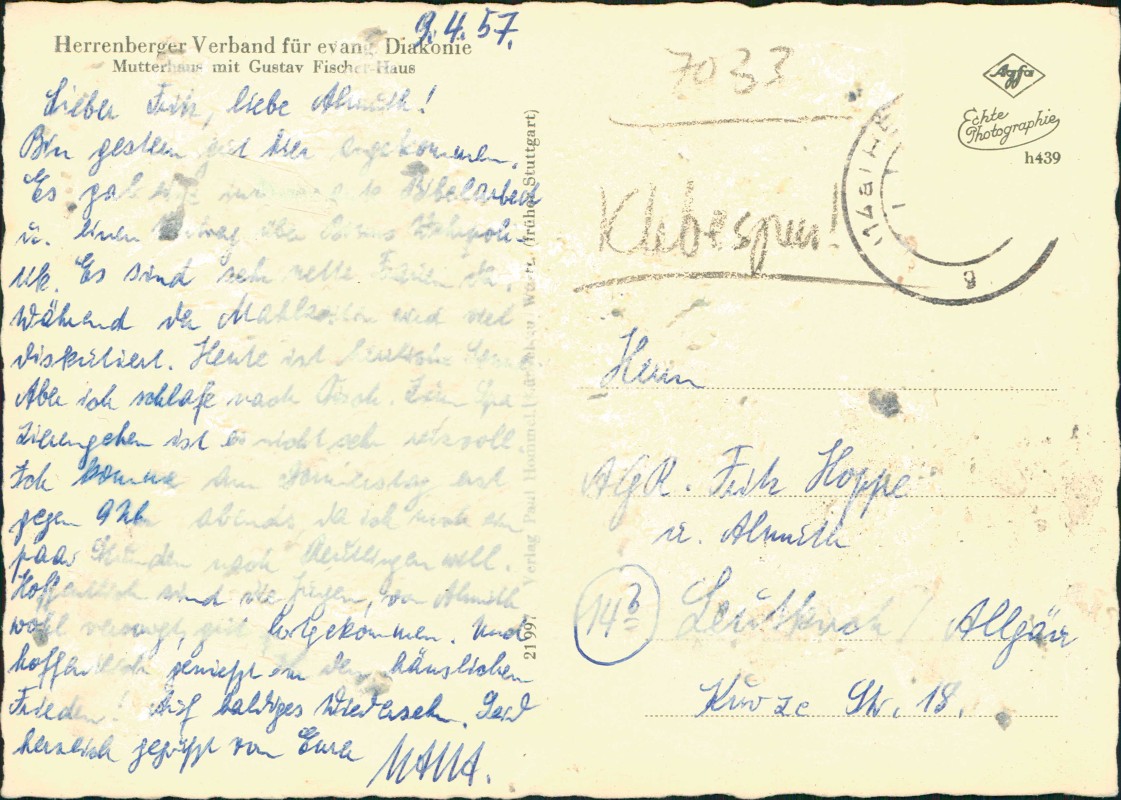 9.4.57.
Herrenberger Verband für evang. Diakonie
Mutterhaus mit Gustav Fischer-Haus
Lieber Fritz, liebe Almuth!
Bin gestern gut hier angekommen.
Es gab Bibelarbeit
u. einen Vortrag über Weltpoli-
tik. Es sind sehr nette Frauen da.
Während der Mahlzeiten wird viel
diskutiert. Heute ist
Aber ich schlafe nach Tisch. Zum Spa
zierengehen ist es nicht sehr reizvoll.
Ich komme am Donnerstag erst
gegen 9 Uhr abends, da ich noch ein
paar Stunden nach Reutlingen will.
Hoffentlich sind die Jungen, von Almuth
wohl versorgt, gut fortgekommen. Und
hoffentlich genießt ihr den häuslichen
Frieden! Auf baldiges Wiedersehn. Seid
herzlich gegrüßt von Eurer MAMA.
21 997 Verlag Paul Hommel, (früher Stuttgart)
7033
Klebespur!
Agfa
Echte
Photographie
h439
Herrn
AGR. Fritz Hoppe
u. Almuth
14b Leutkirch / Allgäu
Kurze Str. 18.